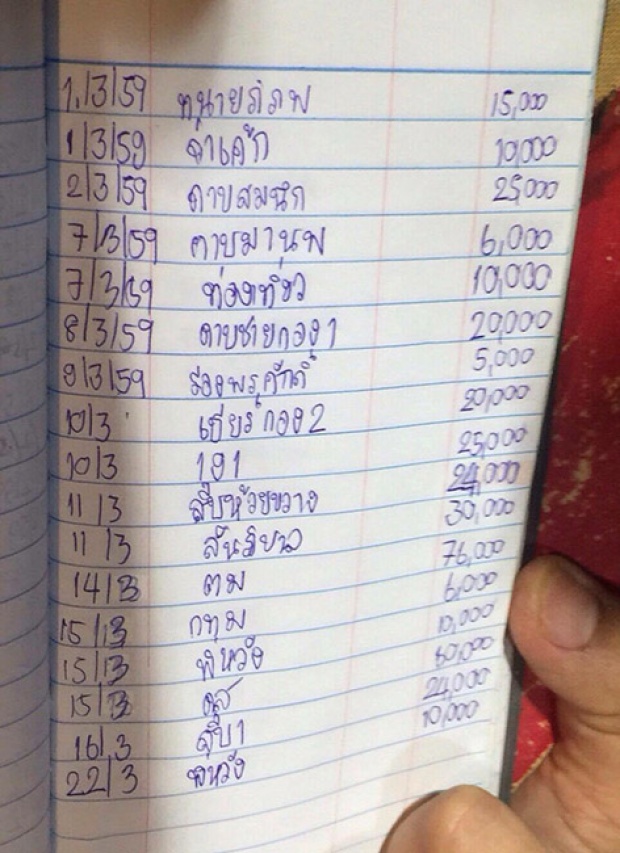 1/3/59 ทนายภิภพ 15,000
1/3/59 จ่าเค้ก 10,000
2/3/59 ดาบสมนึก 25,000
7/3/59 ดาบมานพ 6,000
7/3/59 ท่องเที่ยว 10,000
8/3/59 ดาบชายกอง 1 20,000
9/3/59 รองพรศักดิ์ 5,000
10/3 เธียร์กอง 2 20,000
10/3 191 25,000
11/3 สืบห้วยขวาง 24,000
11/3 สันติบาล 30,000
14/3 ตม 76,000
15/3 กทม 6,000
15/3 พี่หวัง 10,000
15/3 60,000
16/3 สืบ 1 24,000
22/3 พี่หวัง 10,000